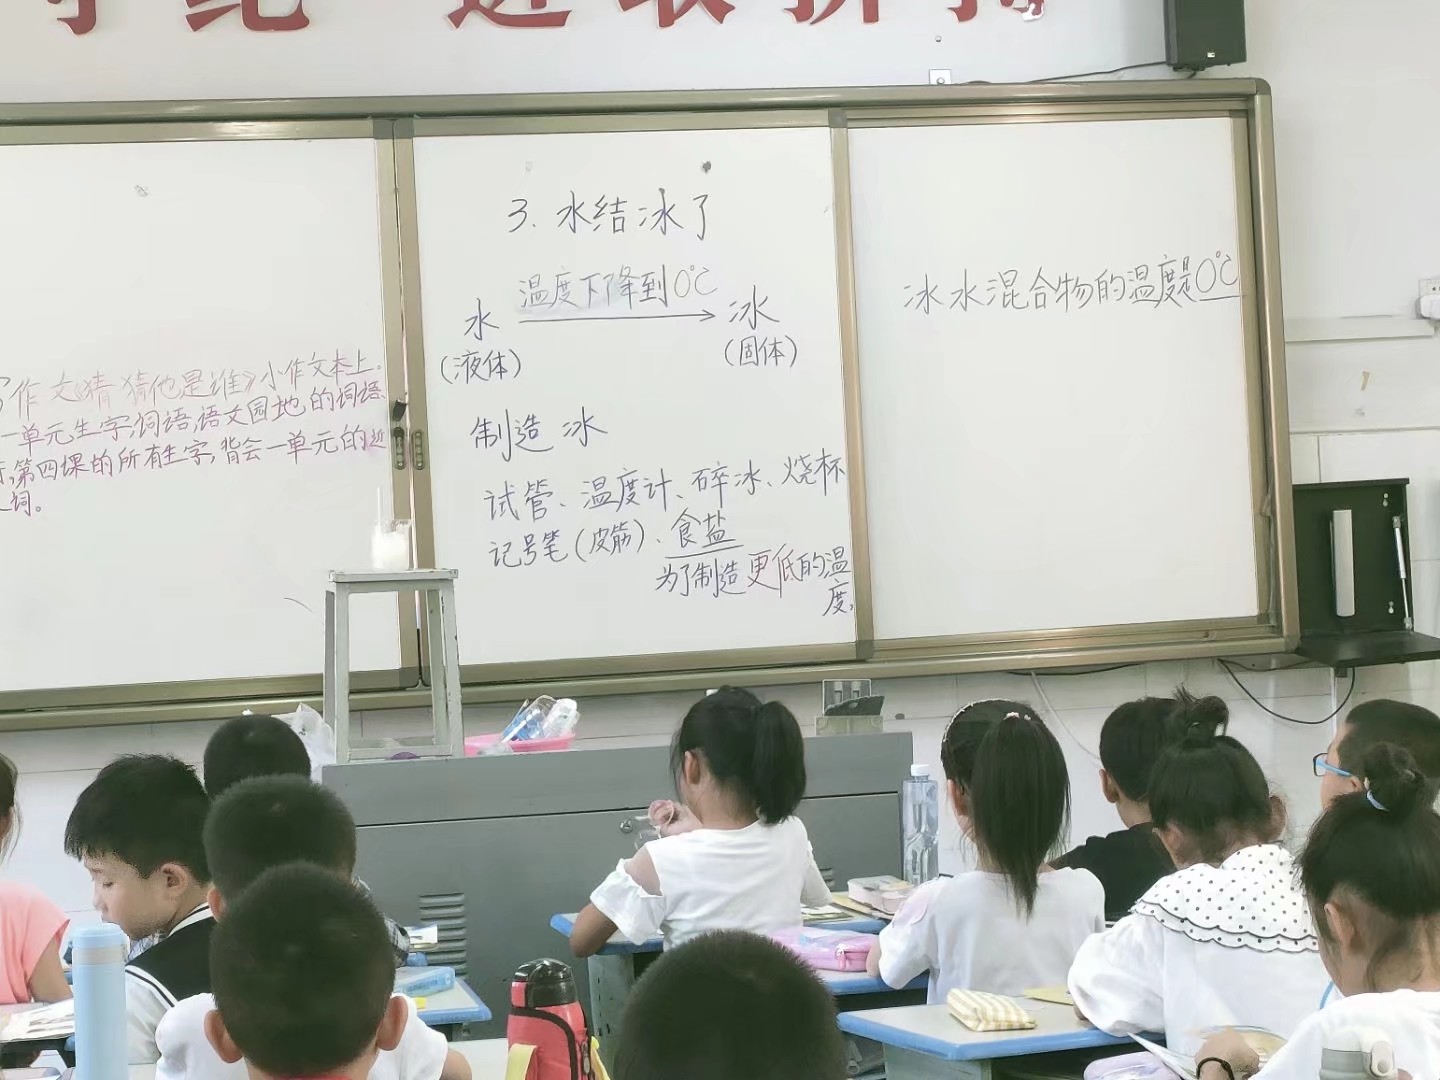 纪 进取
3. 水结冰了
温度下降到0℃
水 冰
(液体) (固体)
制造冰
试管、温度计、碎冰、烧杯
记号笔(皮筋)、食盐
为了制造更低的温
度。
冰水混合物的温度是0℃
作文《猜猜他是谁》小作文本上。
一单元生字,词语,语文园地的词语、
第四课的所有生字,背会一单元的近
词。